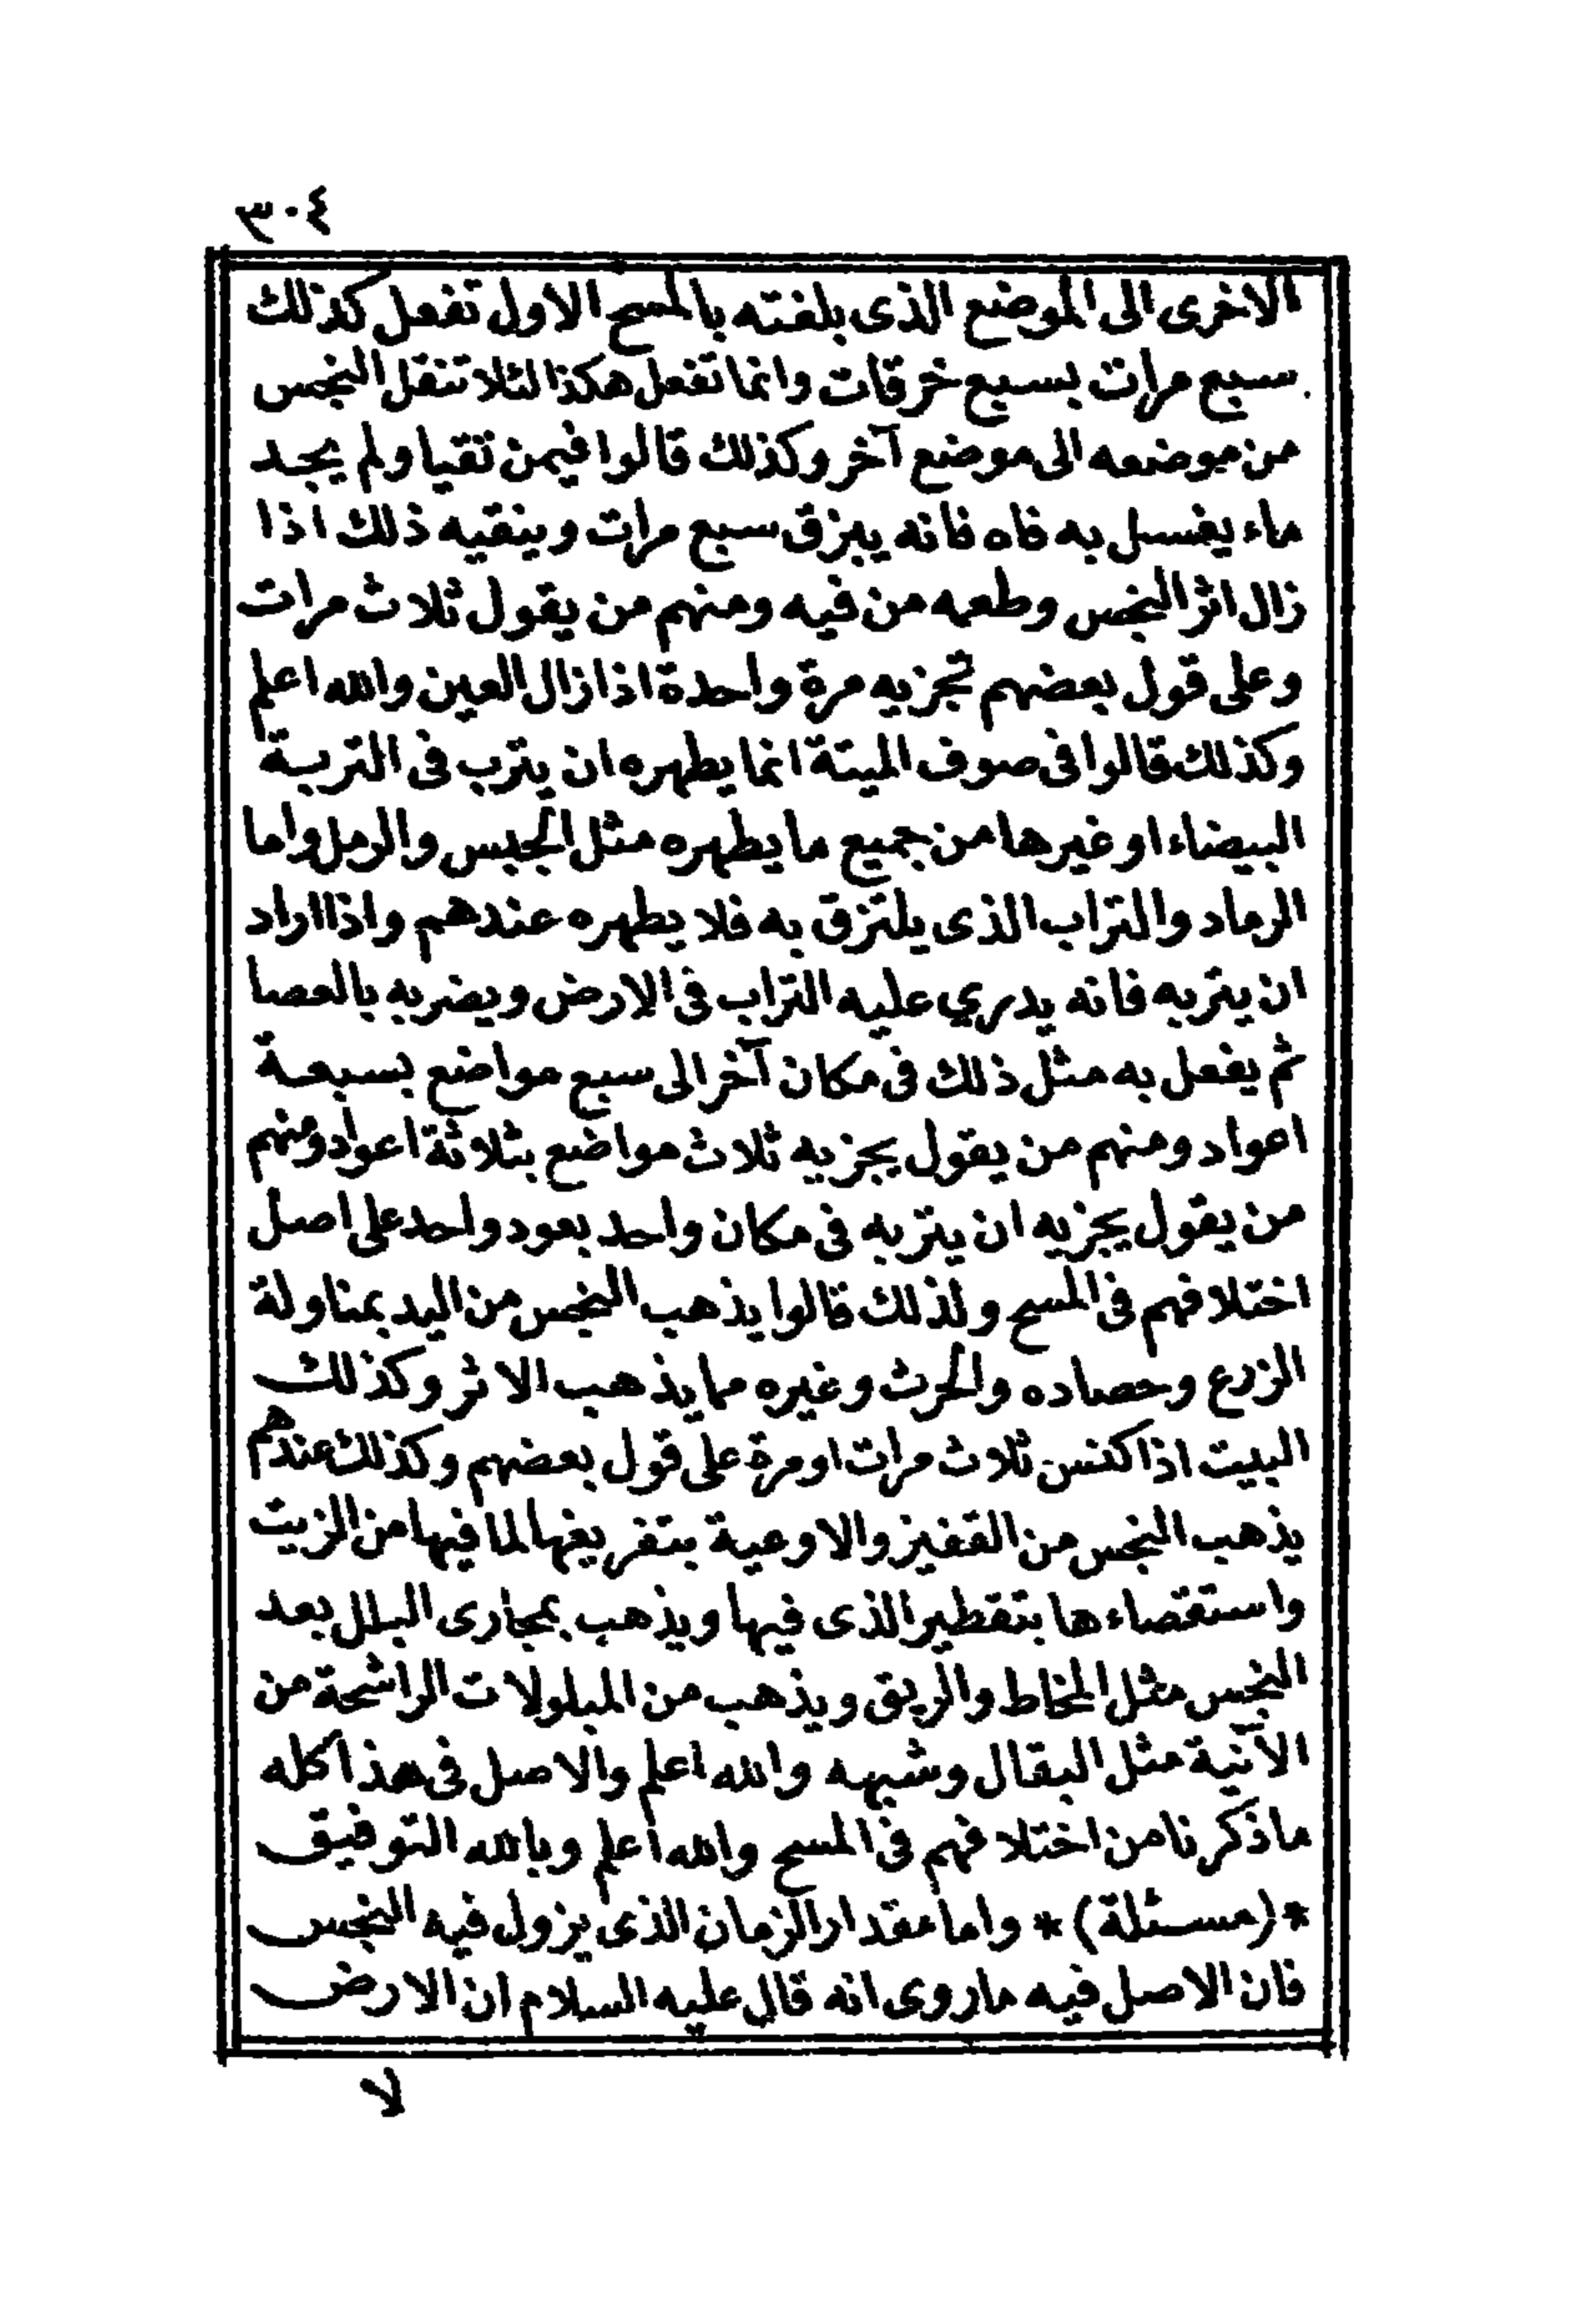 ٣٠٤
الاخرى الى الموضع الذى بلغته بالمسح الاول تفعل كذلك
سبع مرات بسبع خرقات وانما تفعل هكذا لئلا تنقل النجس
من موضعه الى موضع آخر وكذلك قالوا فيمن تقيا ولم يجد
ماء يغسل به فاه فانه يبزق سبع مرات وينقيه ذلك اذا
زال اثر النجس وطعمه من فيه ومنهم من يقول ثلاث مرات
وعلى قول بعضهم تجزيه مرة واحدة اذا زال العين والله اعلم
وكذلك قالوا فى صوف الميتة انما يطهره ان يترب فى التربة
البيضاء او غيرها من جميع ما يطهره مثل الجبس والرمل واما
الرماد والتراب الذى يلتزق به فلا يطهره عندهم واذا اراد
ان يتربه فانه يدري عليه التراب فى الارض ويضربه بالعصا
ثم يفعل به مثل ذلك فى مكان آخر الى سبع مواضع بسبعة
اعواد ومنهم من يقول يجزيه ثلاث مواضع بثلاثة اعواد ومنهم
من يقول يجزيه ان يتربه فى مكان واحد بعود واحد على اصل
اختلافهم فى المسح ولذلك قالوا يذهب النجس من اليد بمناولة
الزرع وحصاده والحرث وغيره مما يذهب الاثر وكذلك
البيت اذا كنس ثلاث مرات او مرة على قول بعضهم وكذلك عندهم
يذهب النجس من القفيز والاوعية بتفريغها لما فيها من الزيت
واستقصاءها بتقطير الذى فيها ويذهب بمجارى البلل بعد
النجس مثل المخاط والريق ويذهب من المبلولات الراشحة من
الآنية مثل البقال وشبهه والله اعلم والاصل فى هذا كله
ما ذكرنا من اختلافهم فى المسح والله اعلم وبالله التوفيق
*(مسئلة)* واما مقدار الزمان الذى يزول فيه النجس
فان الاصل فيه ماروى انه قال عليه السلام ان الارض
لا